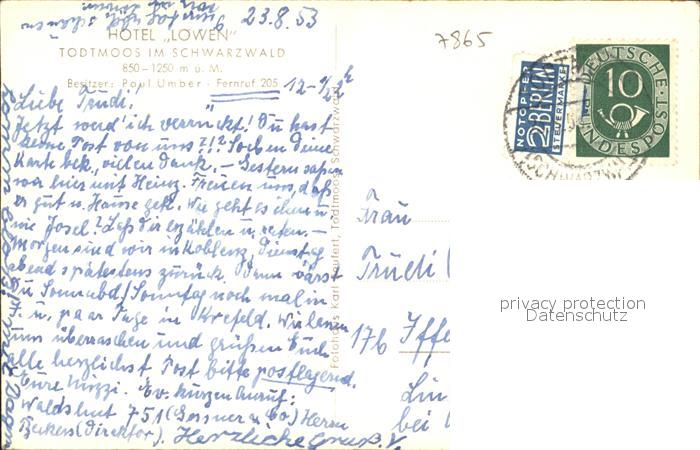 23.8.53
7865
HOTEL „LÖWEN“
TODTMOOS IM SCHWARZWALD
850–1250 m ü. M.
Besitzer: Paul Umber · Fernruf 205
Liebe Trudi.
Jetzt werd' ich verrückt! Du hast
keine Post von uns?!? Soeben Deine
Karte bek., vielen Dank. – Gestern sassen
wir hier mit Heinz. Freuen uns, daß
er gut n. Hause geht. Wie geht es ihm u.
wie Josef? Laß Dir erzählen u.
Morgen sind wir in Koblenz, Dienstag
abend spätestens zurück. Dann wärst
Du Sonnabd/Sonntag noch mal in
u. paar Tage in Krefeld. Wir lassen
uns überraschen und grüßen Euch
alle herzlichst Post bitte postlagernd.
Eure Ev. kurzen Anruf:
Waldshut 751 (Gessner u Co) Herrn
Beckers (Direktor). Herzliche Gruß.
Fotohaus Karl Laufert, Todtmoos, Schwarzwald
Frau
Trudi
176
Iffe
Lin
bei
NOTOPFER
2 BERLIN
STEUERMARKE
DEUTSCHE
10
BUNDESPOST
(SCHWARZW
privacy protection
Datenschutz